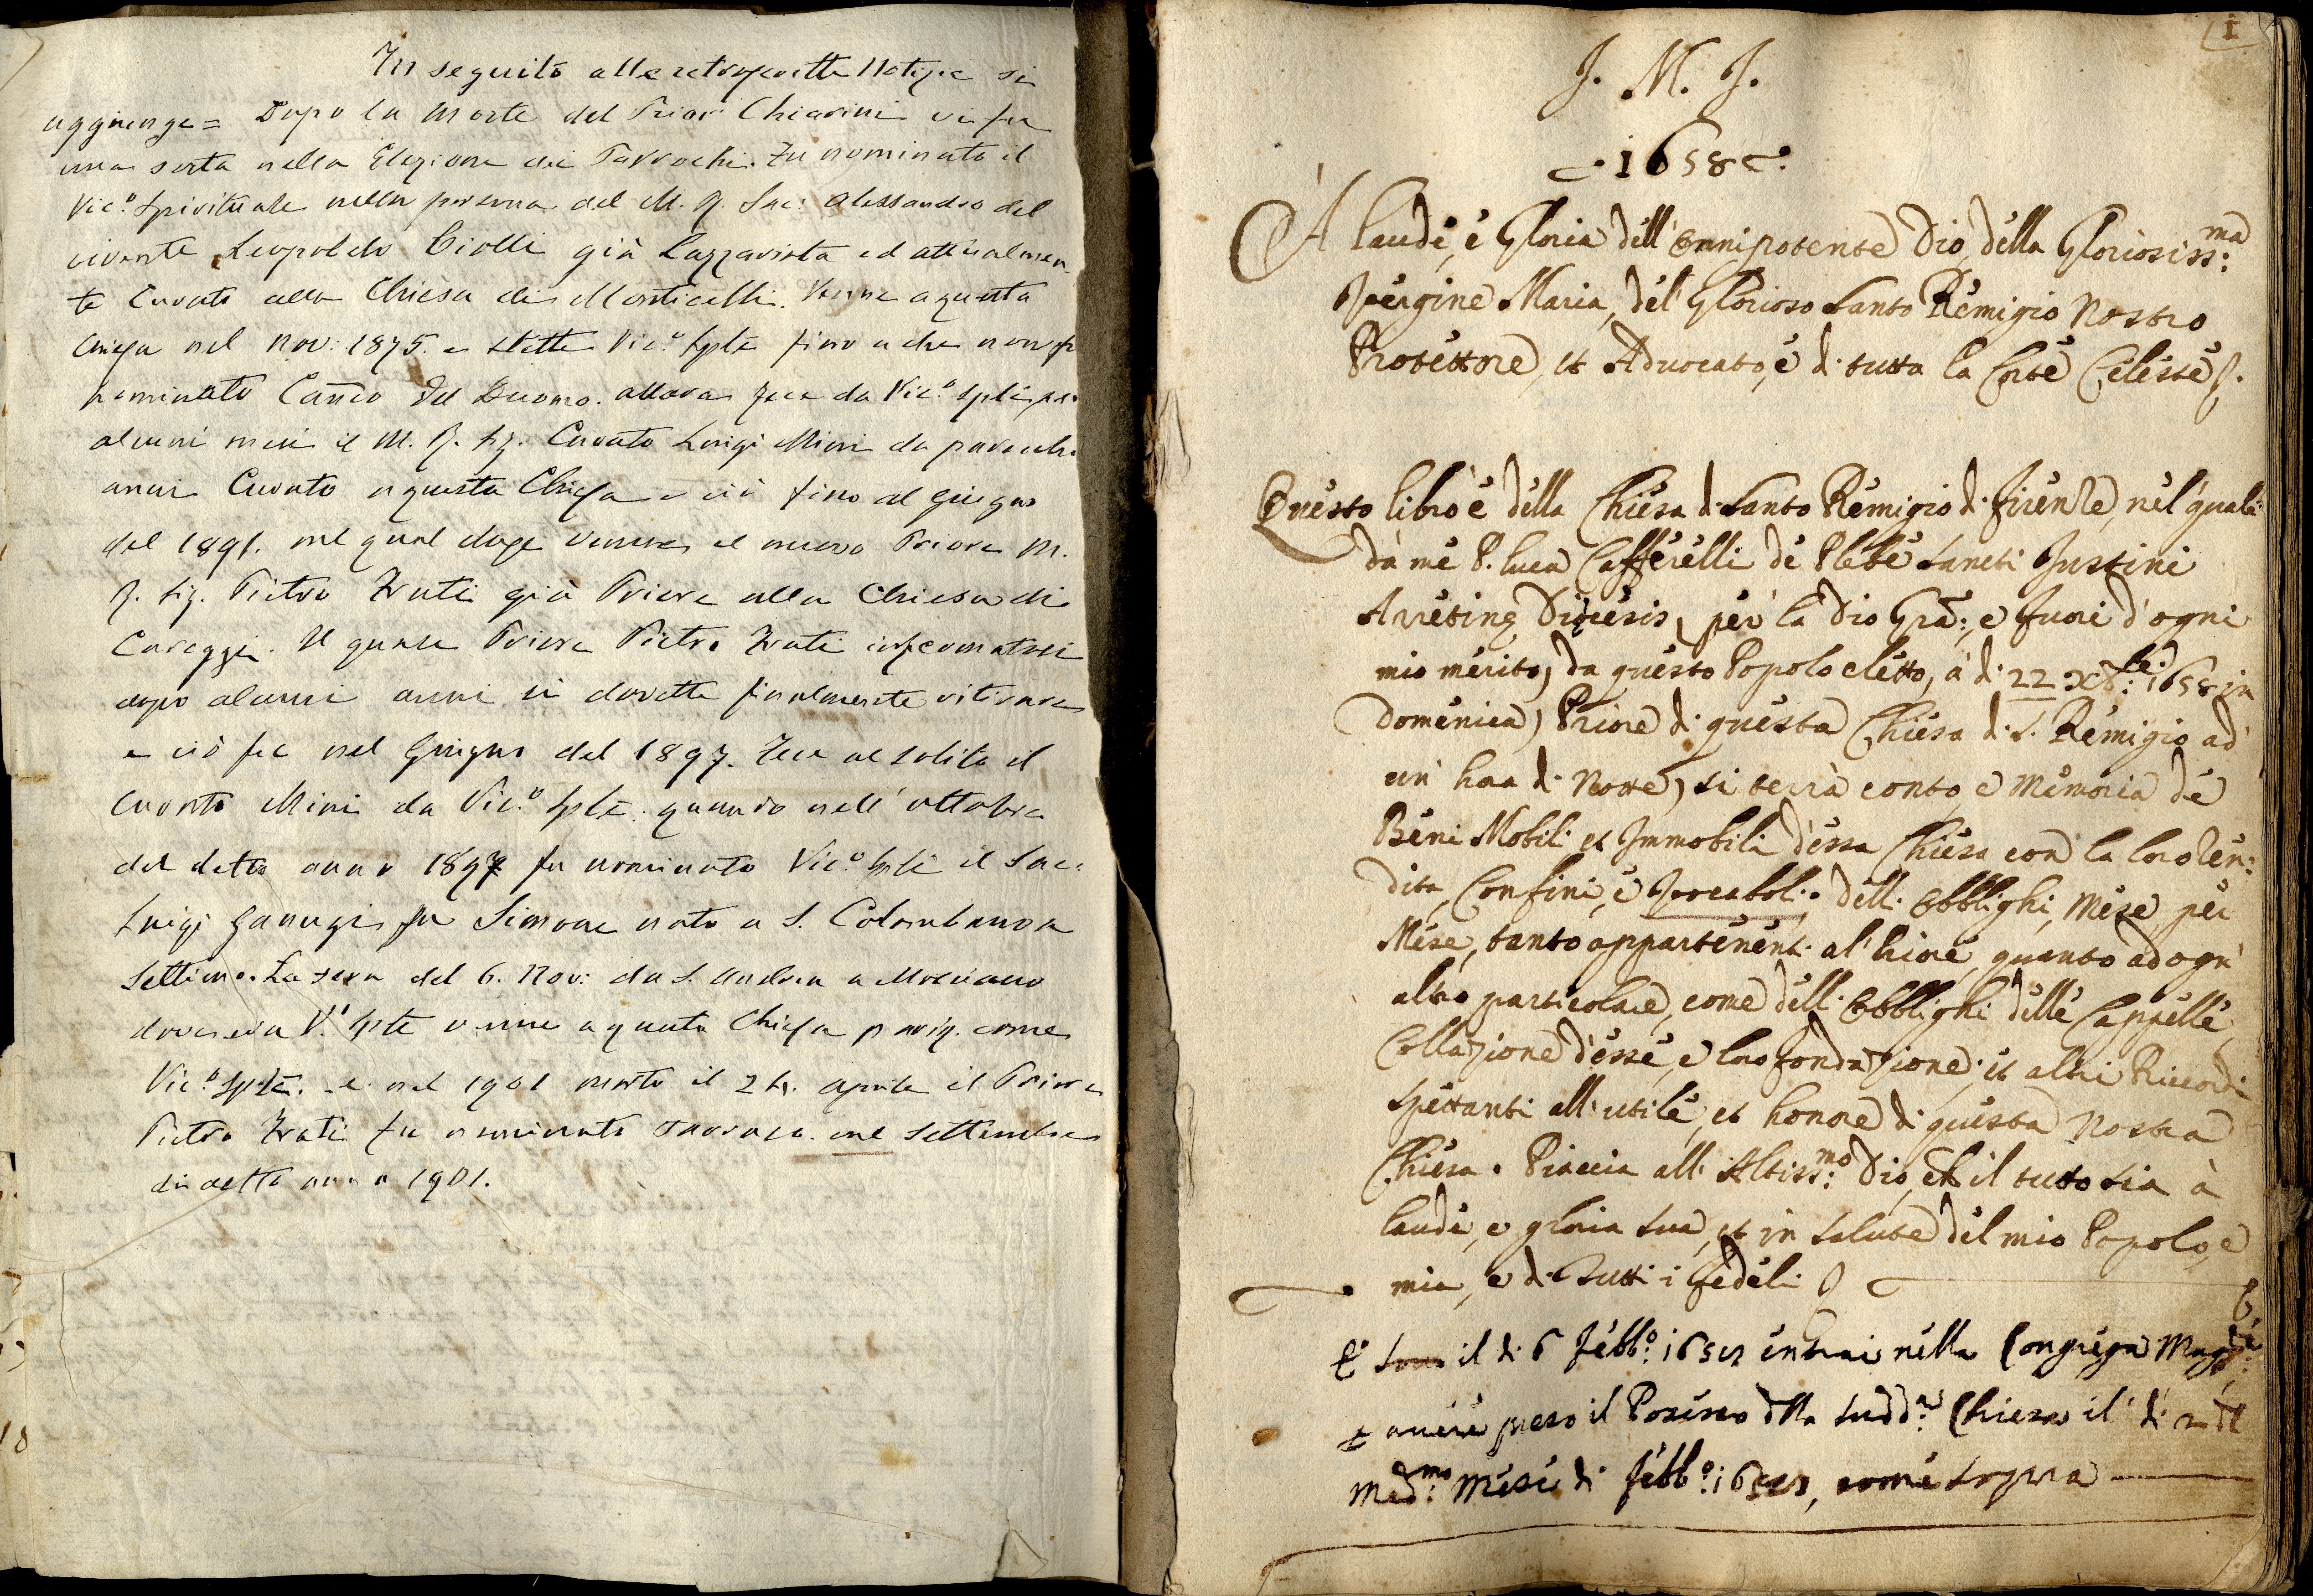 In seguito alle retroscritte Notizie si
aggiunge = Dopo la morte del Prior Chiarini vi fu
una sosta nella Elezione dei Parrochi. Fu nominato il
Vic.º Spirituale nella persona del M. R. Sac: Alessandro del
vivente Leopoldo Ciolli già Lazzarista ed attualmen
te Curato alla Chiesa di Monticelli. Venne a questa
Chiesa nel Nov: 1875. e stette Vic.º Sple fino a che non fu
nominato Canco del Duomo. allora fece da Vic.º Sple per
alcuni mesi il M. R. Sig. Curato Luigi Mini da parecchi
anni Curato a questa Chiesa e ciò fino al giugno
del 1891. nel qual venne il nuovo Priore M.
R. Sig. Pietro Frati già Priore alla Chiesa di
Careggi. Il quale Priore Pietro Frati infermatosi
dopo alcuni anni si dovette finalmente ritirare
e ciò fu nel Giugno del 1897. Fece al solito il
Curato Mini da Vic.º Sple. quando nell'ottobre
del detto anno 1897 fu nominato Vic.º Sple il Sac.
Luigi Ganugi fu Simone nato a S. Colombano a
Settimo. La sera del 6. Nov: da S. Andrea a Mosciano
dove era V.º Sple venne a questa Chiesa come
Vic.º Sple. e nel 1901 morto il aprile il Priore
Pietro Frati fu nominato Parroco nel Settembre
di detto anno 1901.
I
J. M. J.
1658
A laude, e Gloria dell'Omnipotente Dio, della Gloriosiss:ma
Vergine Maria, del Glorioso Santo Remigio Nostro
Protettore, et Advocato, e di tutta la Corte Celeste.
Questo libro è della Chiesa di Santo Remigio di Firenze, nel quale
da me P. Luca Cafferelli de Plebe Sancti Justini
Arretinę Diocesis, per la Dio Gra:, e fuori d'ogni
mio merito, da questo Popolo eletto, a di 22 Xbre: 1658 in
Domenica, Priore di questa Chiesa di S. Remigio ad
un' hora di Notte, si terrà conto e Memoria de
Beni Mobili et Immobili d'essa Chiesa con la loro ren:
dita, Confini, e Vocaboli. delli Obblighi, Mese per
Mese, tanto appartenenti al Priore, quanto ad ogn'
altro particolare, come delli Obblighi delle Cappelle,
Collazione d'esse, e loro fondazione; et altri Ricordi
spettanti all'utile, et honore di questa Nostra
Chiesa. Piaccia all'Altiss:mo Dio, ch il tutto sia à
laude, e gloria sua, et in salute del mio Popolo, e
mia, e di tutti i fedeli
E il di 6 Febb:º entrai nella Congrega
avere preso il Possesso dlla sudd:a Chiesa il di
Med:mo Mese di Febb:º come sopra